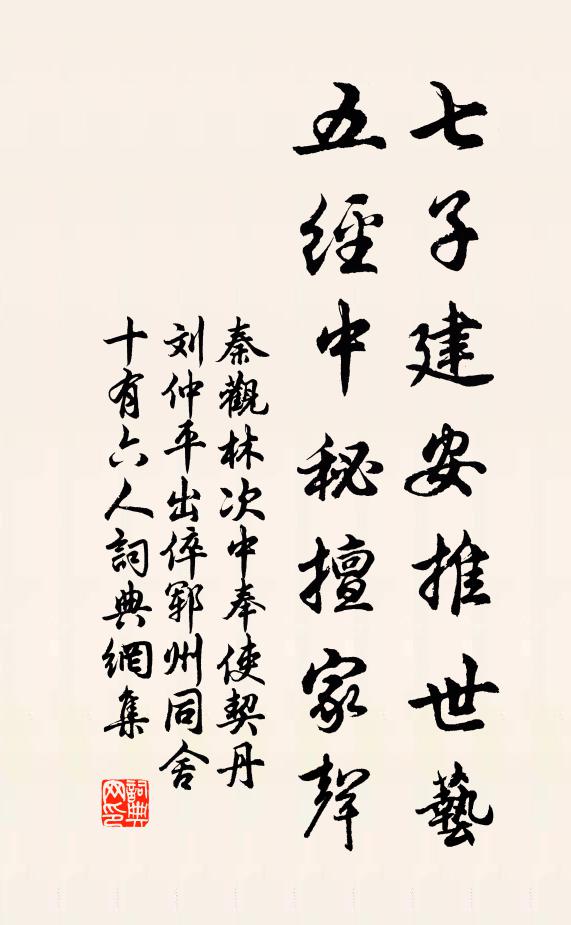 七子建安推世藝
五經中秘擅家聲
秦觀林次中奉使契丹
刘仲平出倅郓州同舍
十有六人詞典網集
詞典網印